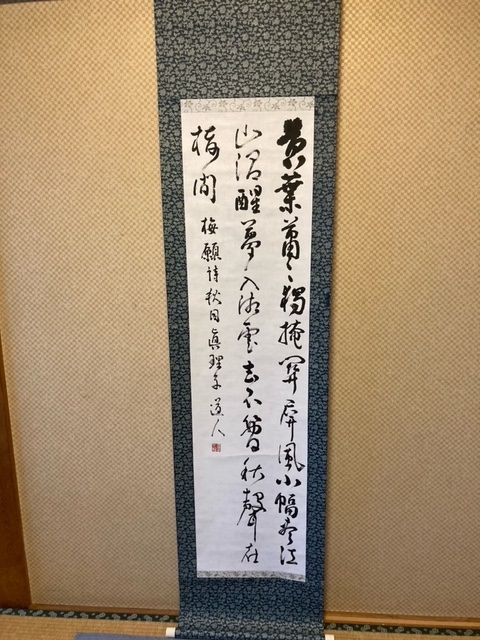 黄葉蕭々獨掩關屏風小幅江
山酒醒夢入湘雲去不秋聲在
樹間 梅願詩秋 眞理子 道人